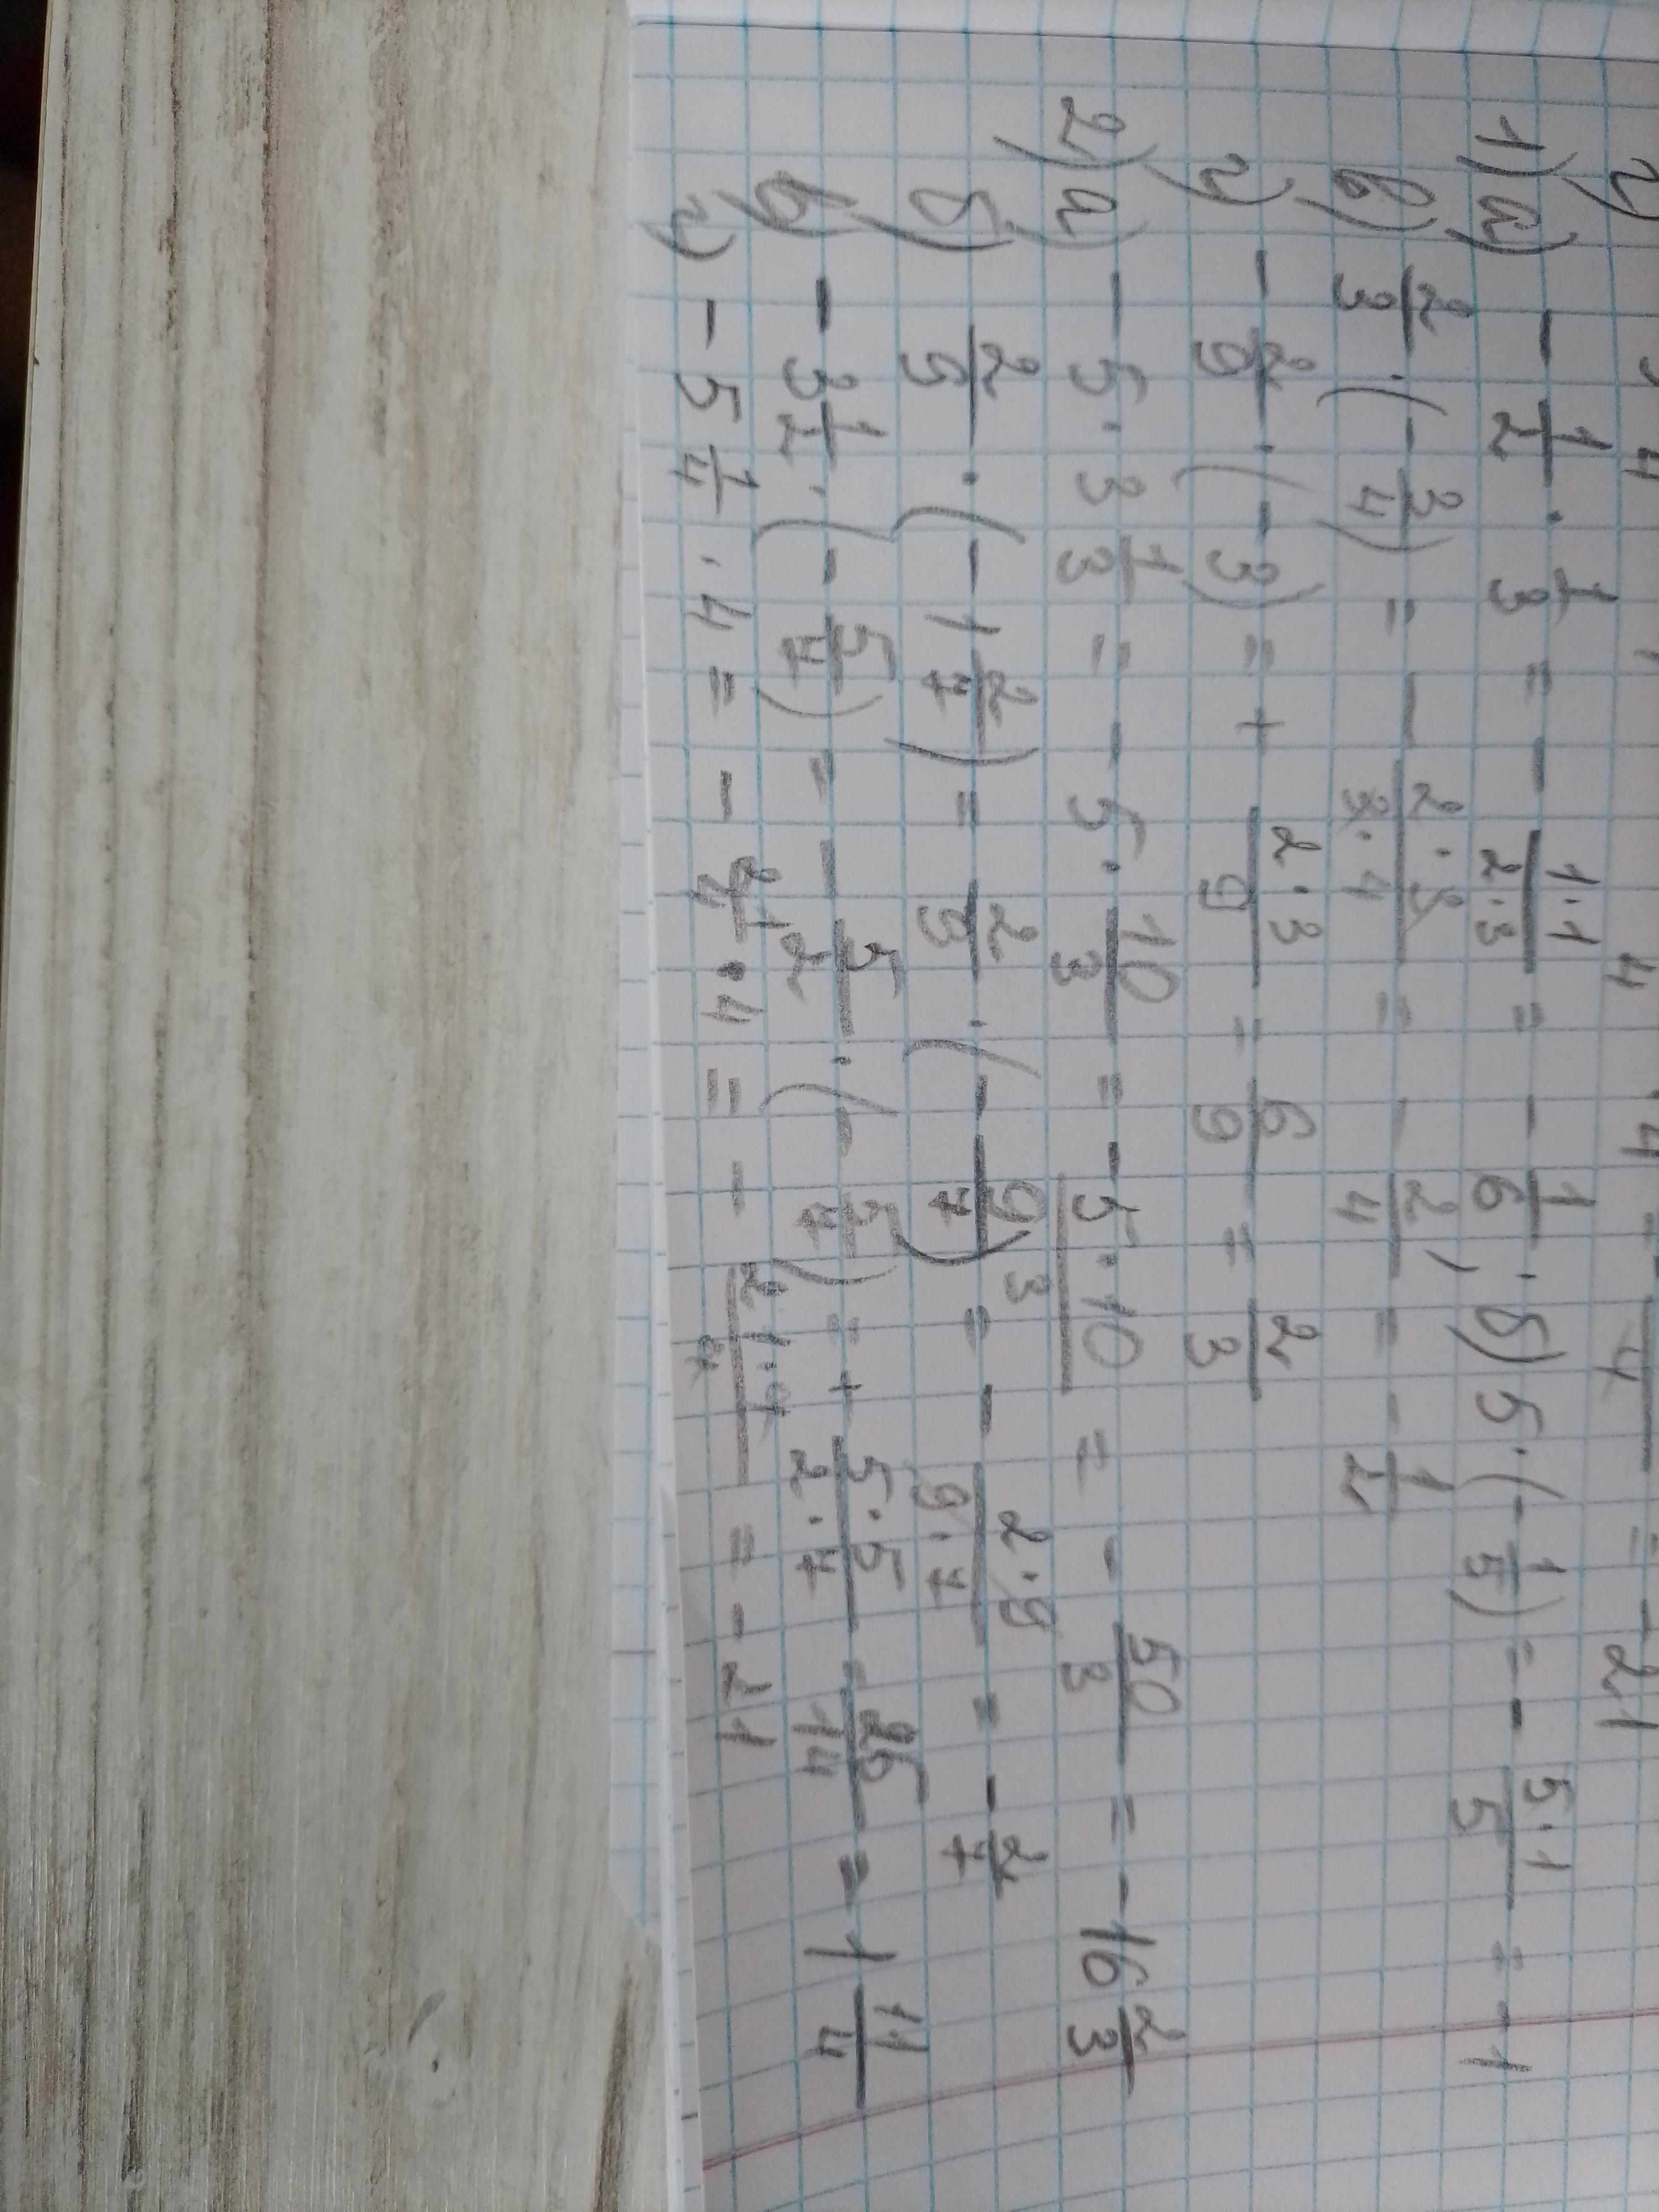 1) а) - 1/2 · 1/3 = - 1·1/2·3 = - 1/6; б) 5 · (- 1/5) = - 5·1/5 = - 1
в) 2/3 · (- 3/4) = - 2·3/3·4 = - 2/4 = - 1/2
г) - 2/9 · (- 3) = + 2·3/9 = 6/9 = 2/3
2) а) - 5 · 3 1/3 = - 5 · 10/3 = - 5·10/3 = - 50/3 = - 16 2/3
б) 2/9 · (- 1 2/7) = 2/9 · (- 9/7) = - 2·9/9·7 = - 2/7
в) - 3 1/2 · (- 5/7) = - 5/2 · (- 5/7) = + 5·5/2·7 = 25/14 = 1 11/4
г) - 5 1/4 · 4 = - 21/4 · 4 = - 21·4/4 = - 21